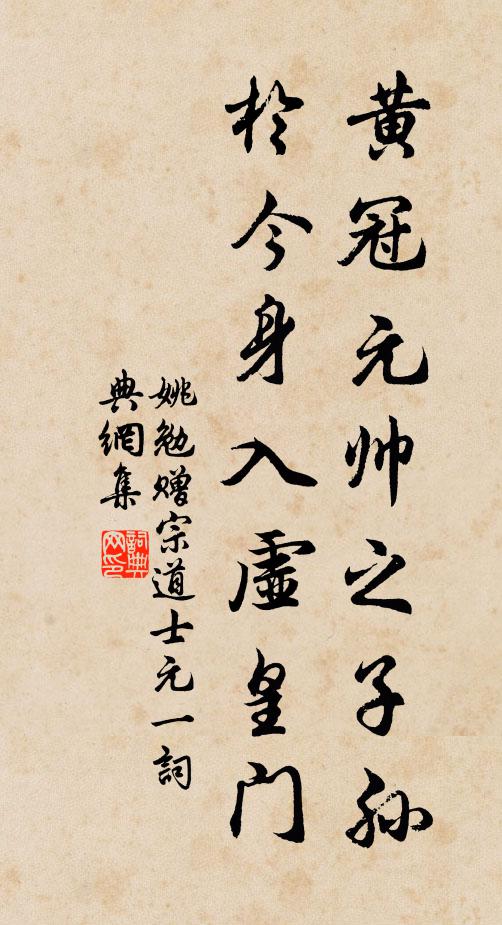 黄冠元帅之子孙
於今身入虛皇门
姚勉赠宗道士元一詞
典網集
詞典
网印